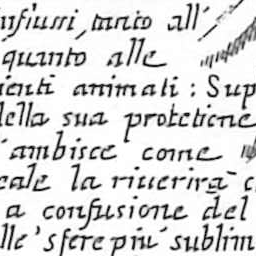 infiussi, tanto all'
quanto alle
ienti animali: Sup
della sua protetione
ambisce come
eale la riuerirà c
a confusione del
lle' sfere più sublim